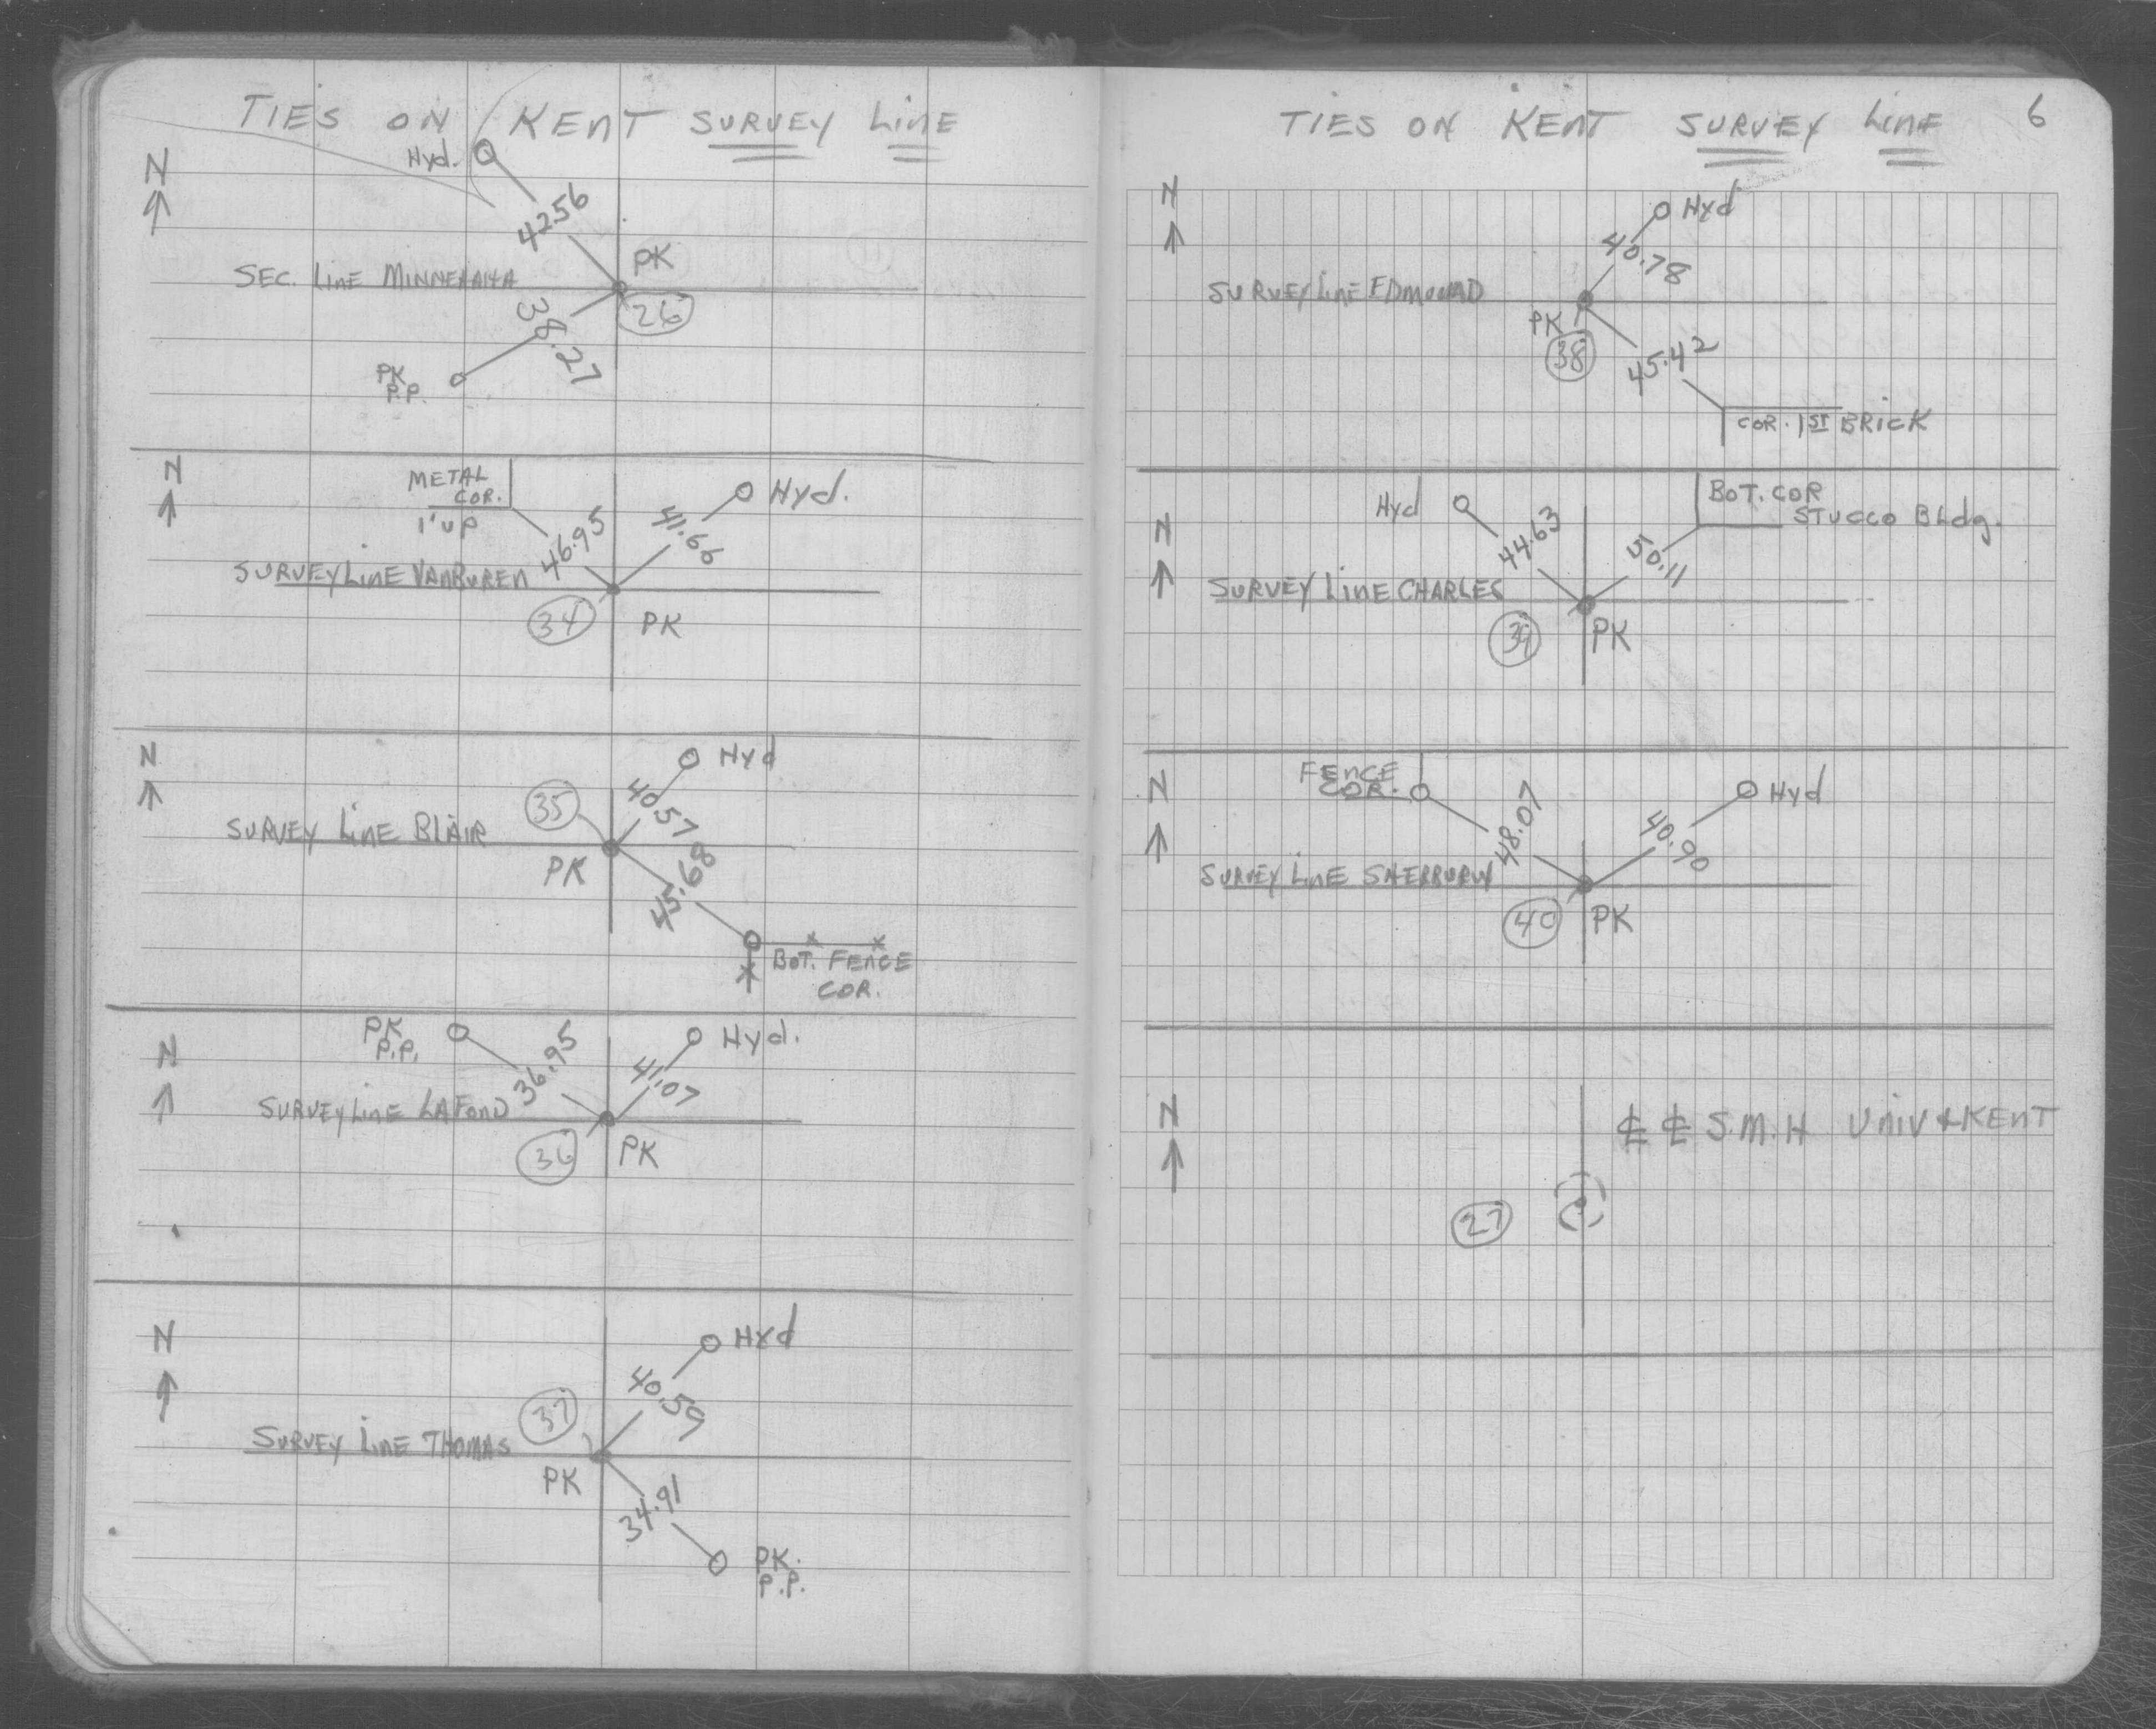 TIES ON KENT SURVEY LINE
Hyd.
N
42.56
PK
SEC. LINE MINNEHAHA
26
38.27
PK
P.P.
N
METAL
COR.
1' UP
Hyd.
46.95
41.66
SURVEY LINE VANBUREN
34
PK
N
Hyd
35
40.57
SURVEY LINE BLAIR
PK
45.68
BOT. FENCE
COR.
PK
P.P.
Hyd.
N
36.95
41.07
SURVEY LINE LAFOND
36
PK
N
Hyd
40.59
37
SURVEY LINE THOMAS
PK
34.91
PK.
P.P.
TIES ON KENT SURVEY LINE
6
N
Hyd
40.78
SURVEY LINE EDMUND
PK
38
45.42
COR. 1ST BRICK
Hyd
BOT. COR
STUCCO Bldg.
N
44.63
50.11
SURVEY LINE CHARLES
39
PK
FENCE
COR.
N
Hyd
48.07
40.90
SURVEY LINE SHERBURN
40
PK
N
℄ ℄ S.M.H UNIV & KENT
27